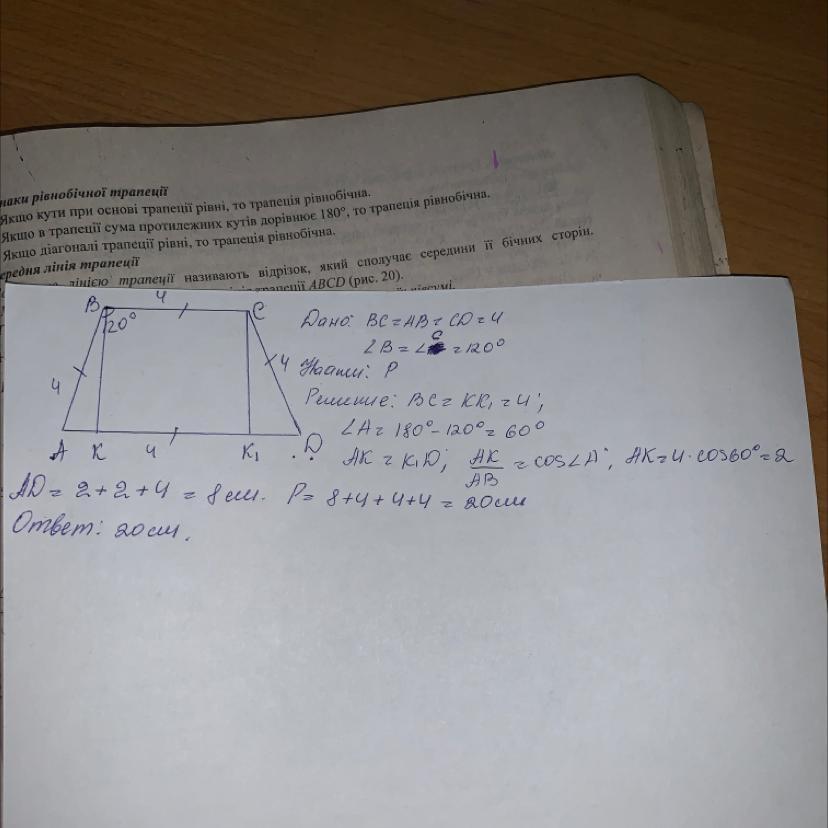 наки рівнобічної трапеції
Якщо кути при основі трапеції рівні, то трапеція рівнобічна.
Якщо в трапеції сума протилежних кутів дорівнює 180°, то трапеція рівнобічна.
Якщо діагоналі трапеції рівні, то трапеція рівнобічна.
ередня лінія трапеції
лінією трапеції називають відрізок, який сполучає середини її бічних сторін.
трапеції ABCD (рис. 20).
B 4 C
120°
4 4
A K 4 K₁ D
Дано: BC = AB = CD = 4
∠B = ∠C = 120°
Найти: P
Решение: BC = KK₁ = 4;
∠A = 180° - 120° = 60°
AK = K₁D; AK/AB = cos∠A; AK = 4 · cos60° = 2
AD = 2 + 2 + 4 = 8 см. P = 8 + 4 + 4 + 4 = 20 см
Ответ: 20 см.